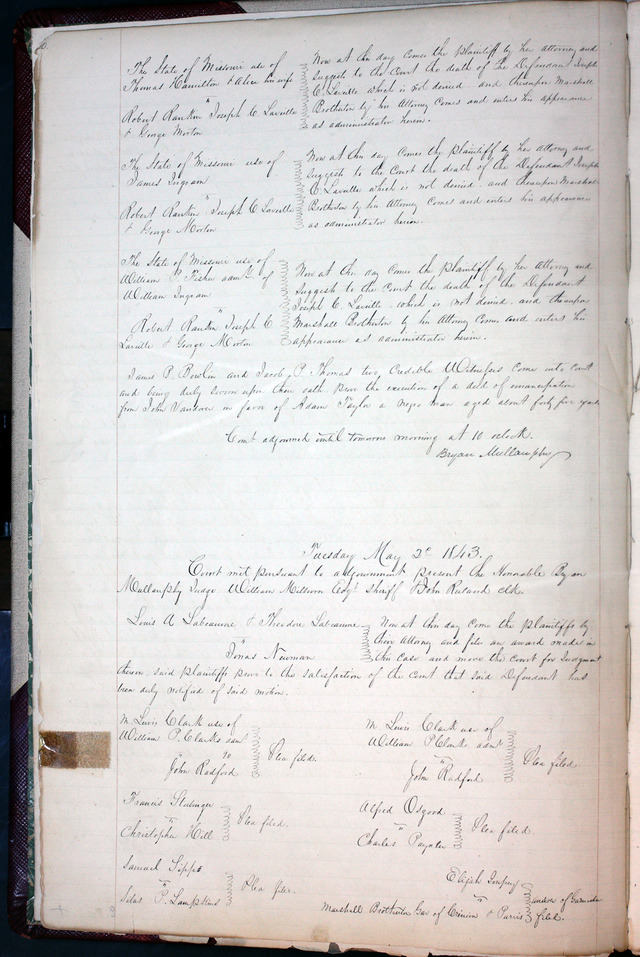 The State of Missouri use of
Thomas Hamilton & Alice his wife
vs
Robert Rankin Joseph C Laveille
& George Morton
Now at this day comes the plaintiff by her attorney and
suggests to the Court the death of the Defendant Joseph
C. Laveille which is not denied and thereupon Marshall
Brotherton by his Attorney comes and enters his appearance
as administrator herein.
The State of Missouri use of
James Ingram
vs
Robert Rankin Joseph C Laveille
& George Morton
Now at this day comes the plaintiff by her attorney and
suggests to the Court the death of the Defendant Joseph
C Laveille which is not denied and thereupon Marshall
Brotherton by his Attorney comes and enters his appearance
as administrator herein.
The State of Missouri use of
William P. Fisher admr. of
William Ingram
vs
Robert Rankin Joseph C
Laveille & George Morton
Now at this day comes the plaintiff by her Attorney and
suggests to the Court the death of the Defendant
Joseph C. Laveille which is not denied and thereupon
Marshall Brotherton by his Attorney comes and enters his
appearance as administrator herein.
James P. and Jacob P. Thomas two credible Witnesses come into court
and being duly sworn upon their oath prove the execution of a deed of emancipation
from John Vandover in favor of Adam Taylor a Negro man aged about forty five years
Court adjourned until tomorrow morning at 10 oclock.
Bryan Mullanphy
Tuesday May 2d 1843.
Court met pursuant to adjournment present the Honorable Bryan
Mullanphy Judge William Milburn Esqr Sheriff John Ruland Clk.
Louis A Labeaume & Theodore Labeaume
vs
Jonas Newman
Now at this day come the plaintiffs by
their Attorney and file an award made in
this Case and move the Court for Judgment
thereon, said plaintiffs prove to the satisfaction of the Court that said Defendant has
been duly notified of said motion.
M. Lewis Clark use of
William P. Clarks admr
vs
John Radford
Plea filed.
M. Lewis Clark use of
William P Clarks admr
vs
John Radford
Plea filed
Francis
vs
Christopher Hill
Plea filed.
Alfred Osgood
vs
Charles Paynter
Plea filed.
Samuel
vs
Silas P. Lampkins
Plea filed.
Elijah
vs
Marshall Brotherton Gar of Crinion & Purvis
answer of Garnishee
filed.